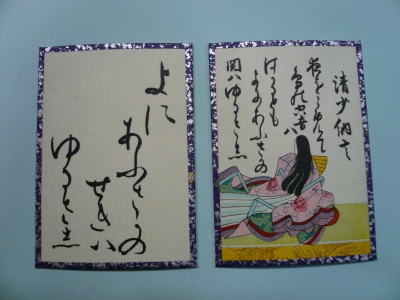 清少納言
夜をこめて
鳥の空音ハ
はかるとも
よにあふさかの
関ハゆるさし
よに
あふさかの
せきハ
ゆるさし